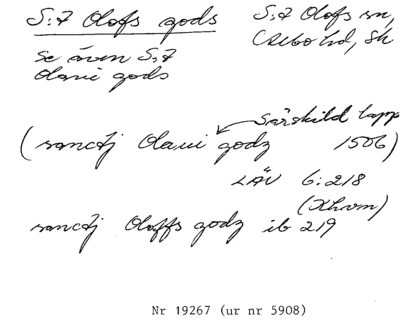 S:t Olofs gods
S:t Olofs sn,
Albo hd, Sk
se även S:t
Olavi gods
särskild lapp
(sanctj Olaui godz 1506)
LÄU 6:218
(Xhvm)
sanctj Oloffs godz ib 219
Nr 19267 (ur nr 5908)